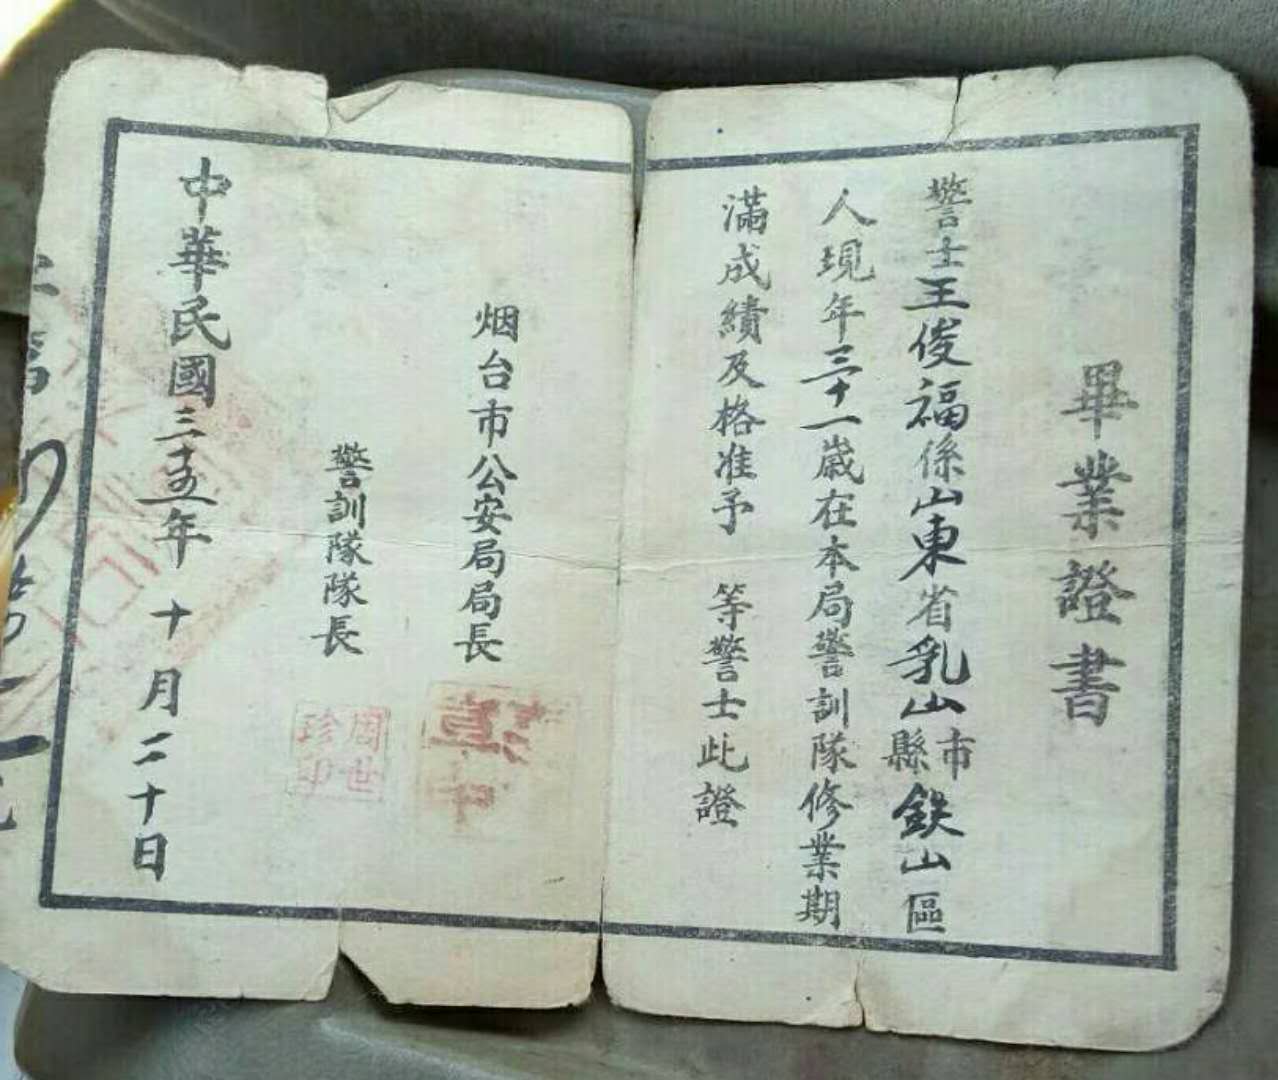 畢業證書
警士王俊福係山東省乳山市縣鉄山區
人現年三十一歲在本局警訓隊修業期
滿成績及格准予 等警士此證
烟台市公安局局長
警訓隊隊長
周世珍印
中華民國三十五年 十月二十日